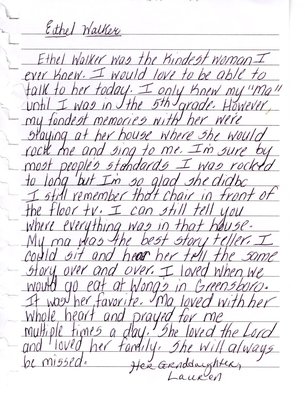 Ethel Walker
Ethel Walker was the kindest woman I
ever knew. I would love to be able to
talk to her today. I only knew my "Ma"
until I was in the 5th grade. However,
my fondest memories with her were
staying at her house where she would
rock me and sing to me. I'm sure by
most peoples standards I was rocked
to long but I'm so glad she did bc
I still remember that chair in front of
the floor tv. I can still tell you
where everything was in that house.
My ma was the best story teller. I
could sit and hear her tell the same
story over and over. I loved when we
would go eat at Wongs in Greensboro.
It was her favorite. Ma loved with her
whole heart and prayed for me
multiple times a day. She loved the Lord
and loved her family. She will always
be missed.
Her Grnddaughter,
Lauren